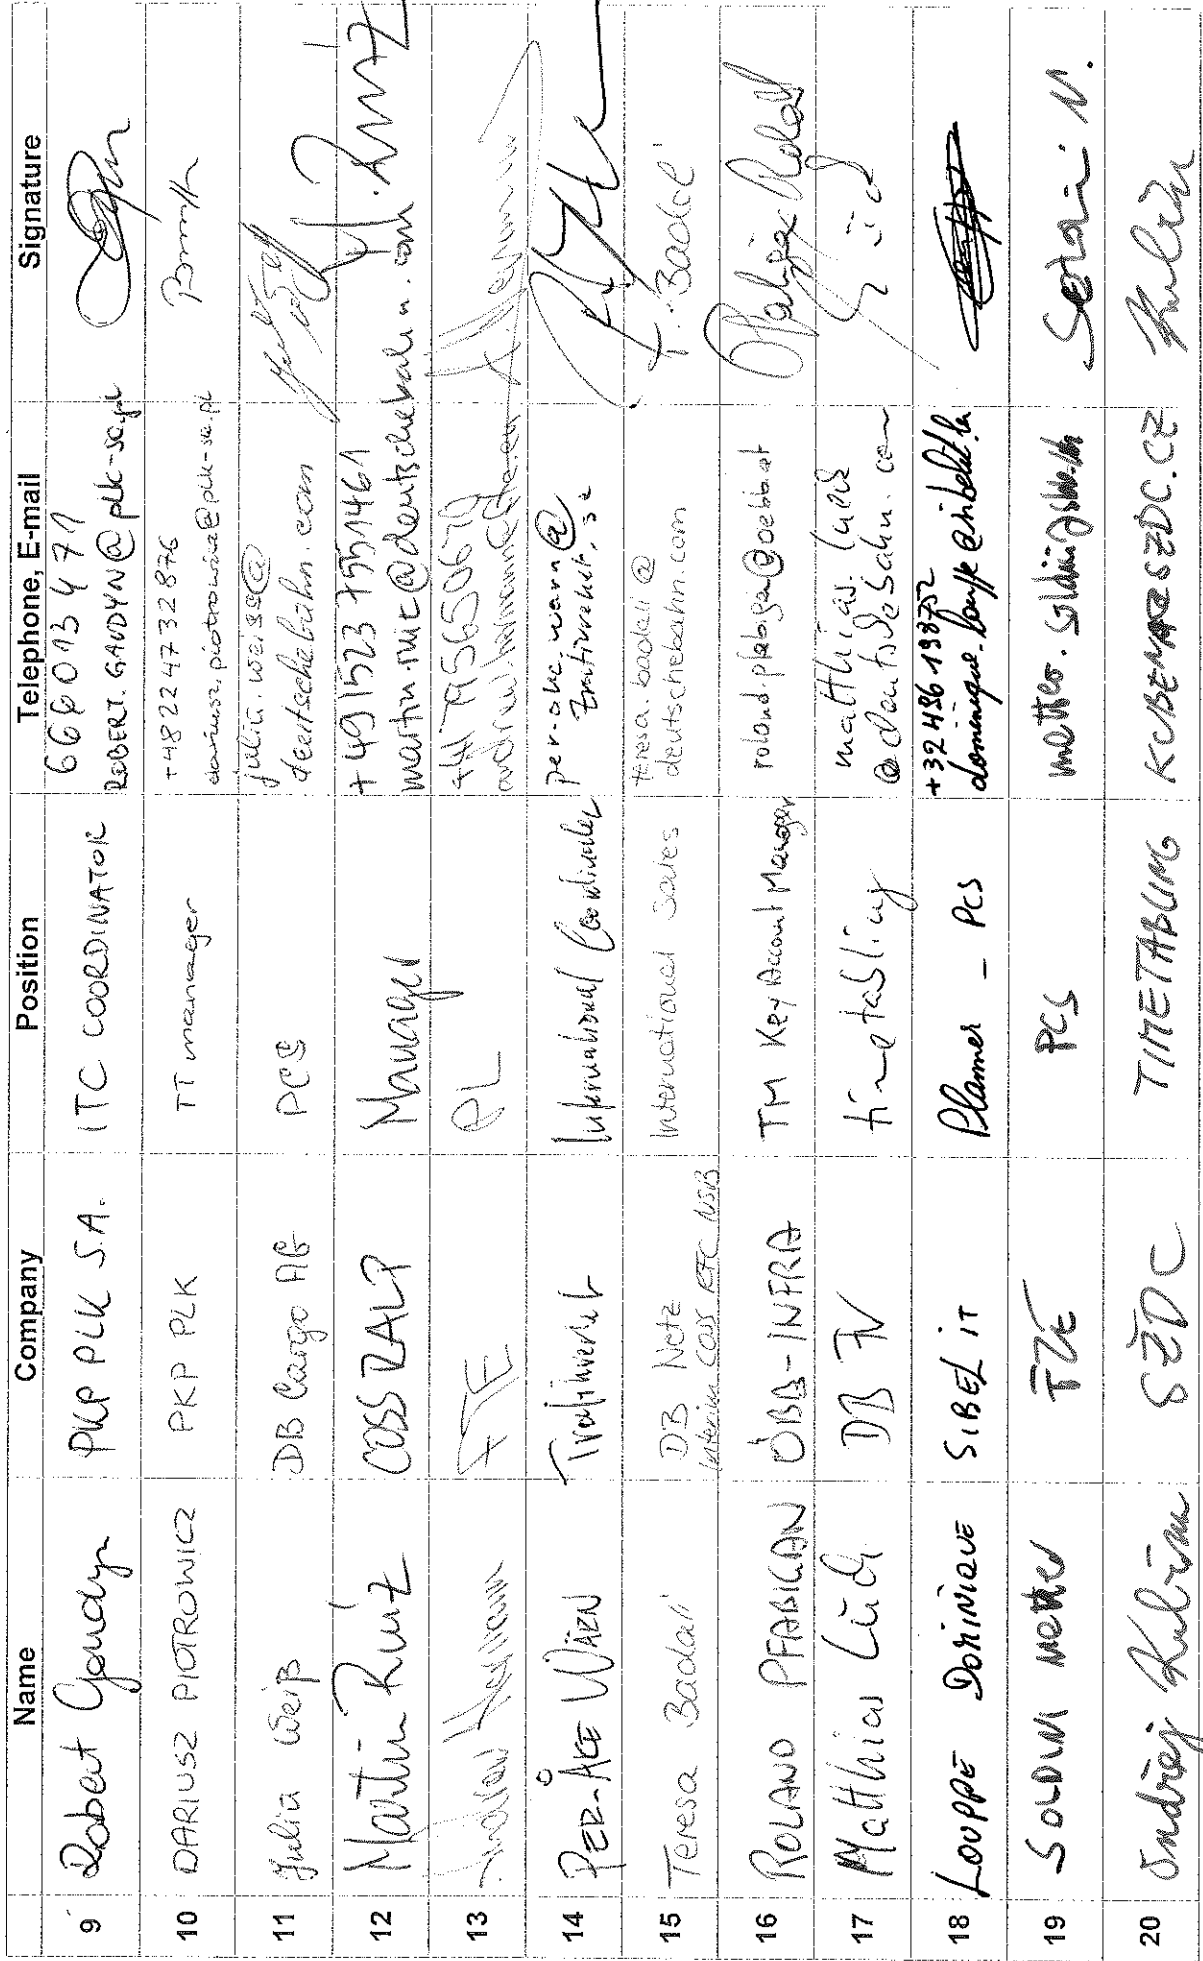 Name Company Position Telephone, E-mail Signature
9 Robert Gaudyn PKP PLK S.A. ITC COORDINATOR 666013471
ROBERT.GAUDYN@plk-sa.pl
10 DARIUSZ PIOTROWICZ PKP PLK TT manager +48224732876
dariusz.piotrowicz@plk-sa.pl
11 Julia Weiß DB Cargo AG PCS julia.weiss@
deutschebahn.com
12 Martin Ruiz COSS RALP Manager +4915237551461
martin.ruiz@deutschebahn.com M. Ruiz
13 FTE PL
14 PER-ÅKE WÄRN Trafikverket International Coordinator per-ake.warn@
trafikverket.se
15 Teresa Badali DB Netz International Sales teresa.badali@
Interim COSS RFC NSB deutschebahn.com T. Badali
16 ROLAND PFABIGAN ÖBB-INFRA TM Key Account Manager roland.pfabigan@oebb.at Pfabigan Roland
17 Matthias DB timetabling matthias.
@deutschebahn.com
18 LOUPPE DOMINIQUE SIBELIT Planner - PCS +32486198752
dominique.louppe@sibelit.lu
19 SOLDINI Matteo PCS
20 Ondřej Kubín SŽDC TIMETABLING